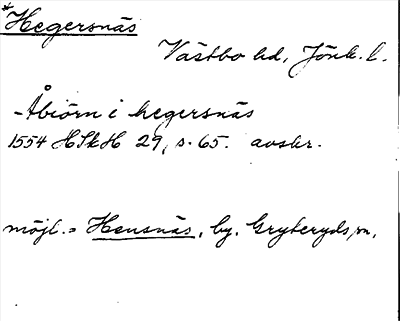 *Hegersnäs
Västbo hd, Jönk. l.
-Åbiörn i hegersnäs
1554 HSkH 29, s. 65. avskr.
möjl. = Hensnäs, by, Gryteryds sn,